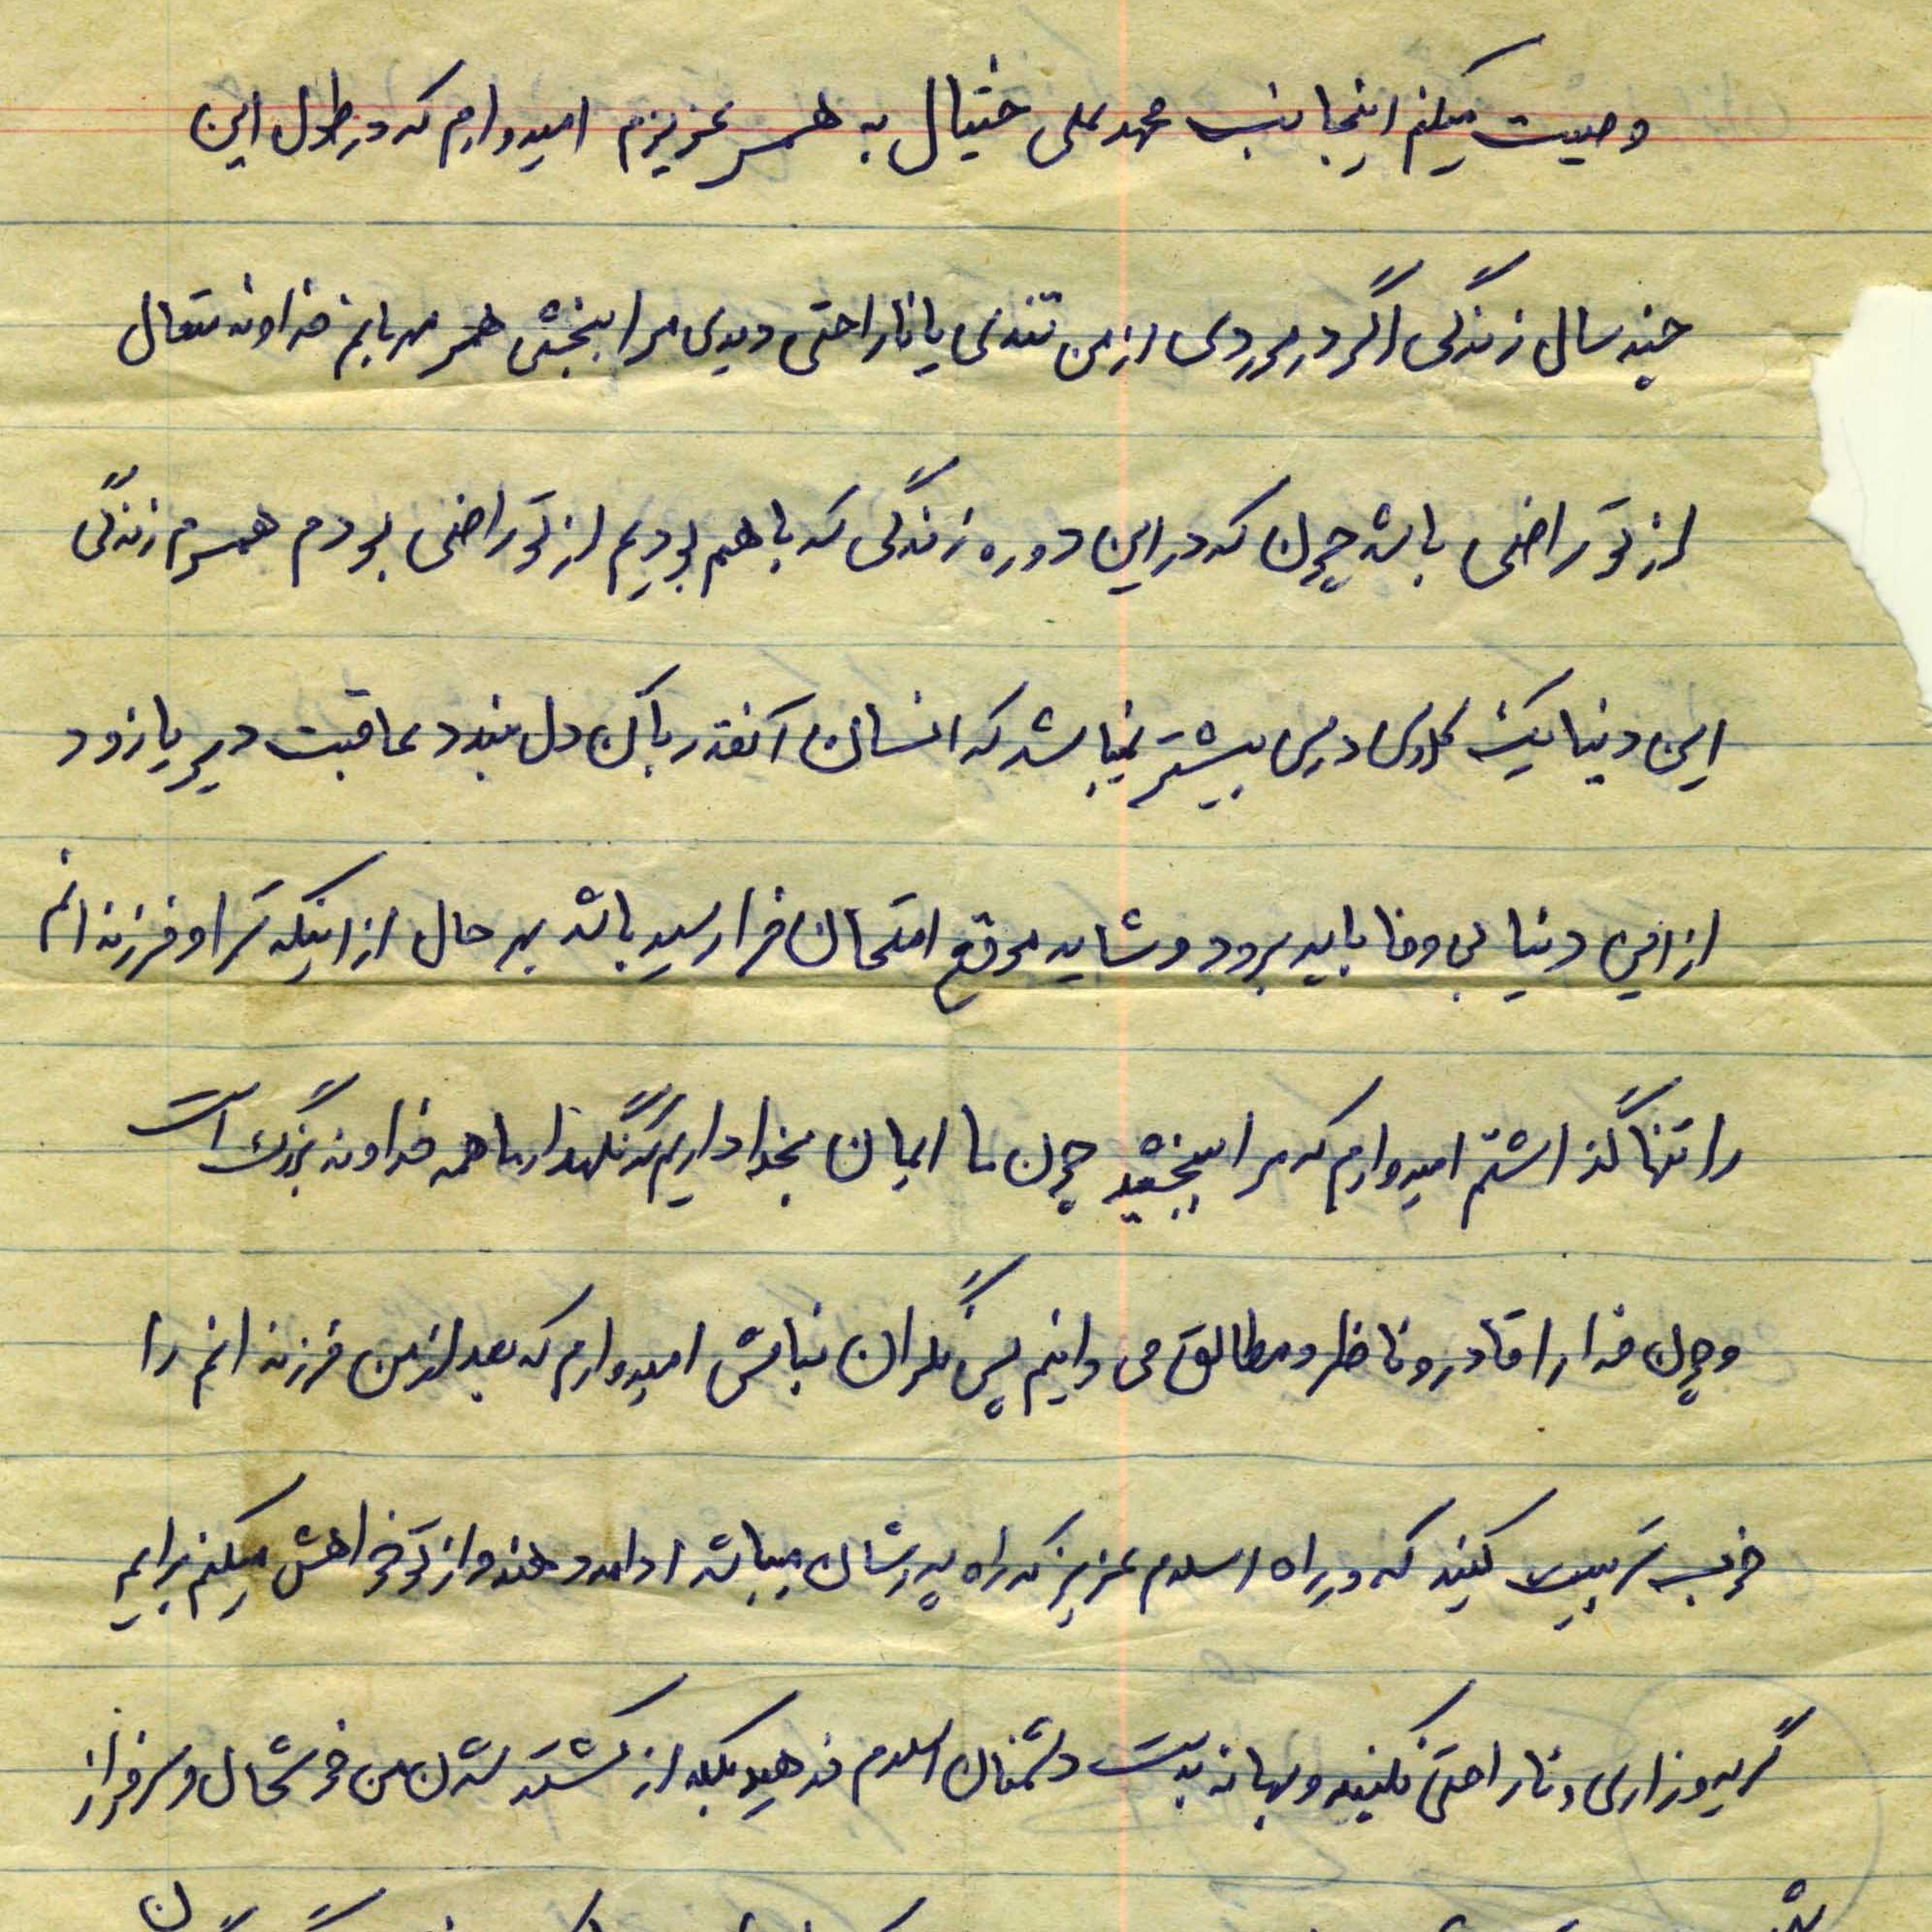 وصیت میکنم اینجانب محمد علی ختیال به همسر عزیزم امیدوارم که در طول این
چند سال زندگی اگر در موردی از من تندی یا ناراحتی دیدی مرا ببخشی همسر مهربانم خداوند متعال
از تو راضی باشد چون که در این دوره زندگی که با هم بودیم از تو راضی بودم همسرم زندگی
این دنیا یک کلاس درس بیشتر نمیباشد که انسان آنقدر بآن دل ببندد عاقبت دیر یا زود
از این دنیا بی وفا باید برود و شاید موقع امتحان فرا رسید باشد بهر حال از اینکه ترا و فرزندانم
را تنها گذاشتم امیدوارم که مرا ببخشید چون ما ایمان بخدا داریم که نگهدار ما همه خداوند بزرگ است
و چون خدا را قادر و ناظر و مطالق می دانیم پس نگران نباش امیدوارم که بعد از من فرزندانم را
خوب تربیت کنید که در راه اسلام عزیز که راه پدرشان میباشد ادامه دهند و از تو خواهش میکنم برایم
گریه و زاری و ناراحتی نکنید و بهانه بدست دشمنان اسلام ندهید بلکه از کشته شدن من خوشحال و سرفراز